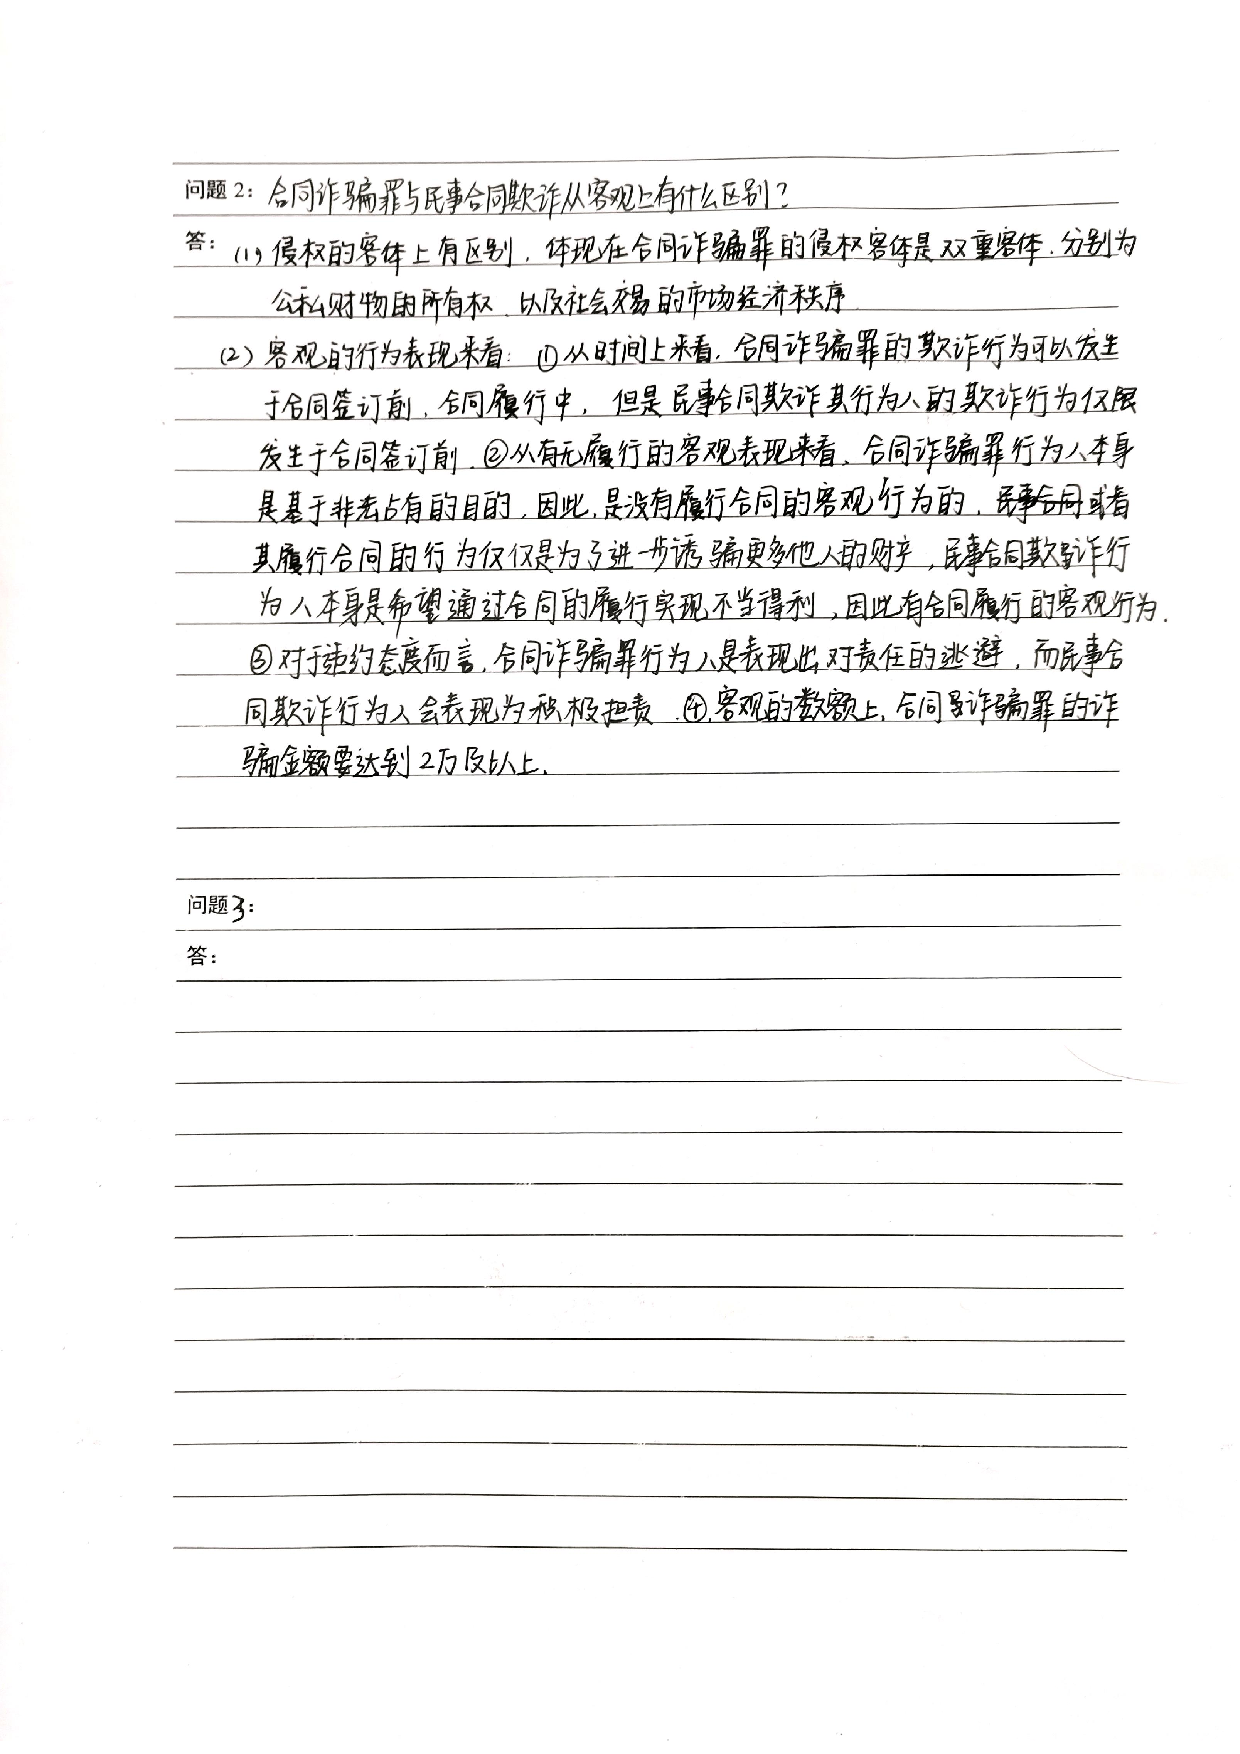 问题2：合同诈骗罪与民事合同欺诈从客观上有什么区别？
答：(1) 侵权的客体上有区别，体现在合同诈骗罪的侵权客体是双重客体，分别为
公私财物的所有权、以及社会交易的市场经济秩序.
(2) 客观的行为表现来看：①从时间上来看，合同诈骗罪的欺诈行为可以发生
于合同签订前，合同履行中，但是民事合同欺诈其行为人的欺诈行为仅限
发生于合同签订前.②从有无履行的客观表现来看，合同诈骗罪行为人本身
是基于非法占有的目的，因此，是没有履行合同的客观行为的，民事合同或者
其履行合同的行为仅仅是为了进一步诱骗更多他人的财产，民事合同欺诈行
为人本身是希望通过合同的履行实现不当得利，因此有合同履行的客观行为.
③对于违约态度而言，合同诈骗罪行为人是表现出对责任的逃避，而民事合
同欺诈行为人会表现为积极担责.④.客观的数额上，合同诈骗罪的诈
骗金额要达到2万及以上.
问题3：
答：